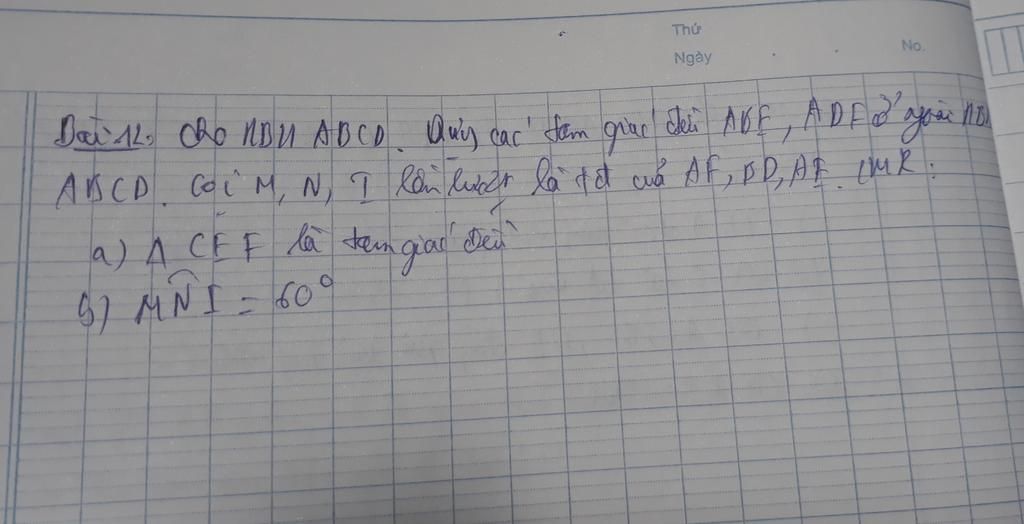 Thứ
Ngày
No.
Bài 12. Cho HBH ABCD. Dựng các tam giác đều ABE, ADF ở ngoài HBH
ABCD. Gọi M, N, I lần lượt là tđ của AF, BD, AE. CMR:
a) Δ CEF là tam giác đều
b) MNI = 60°